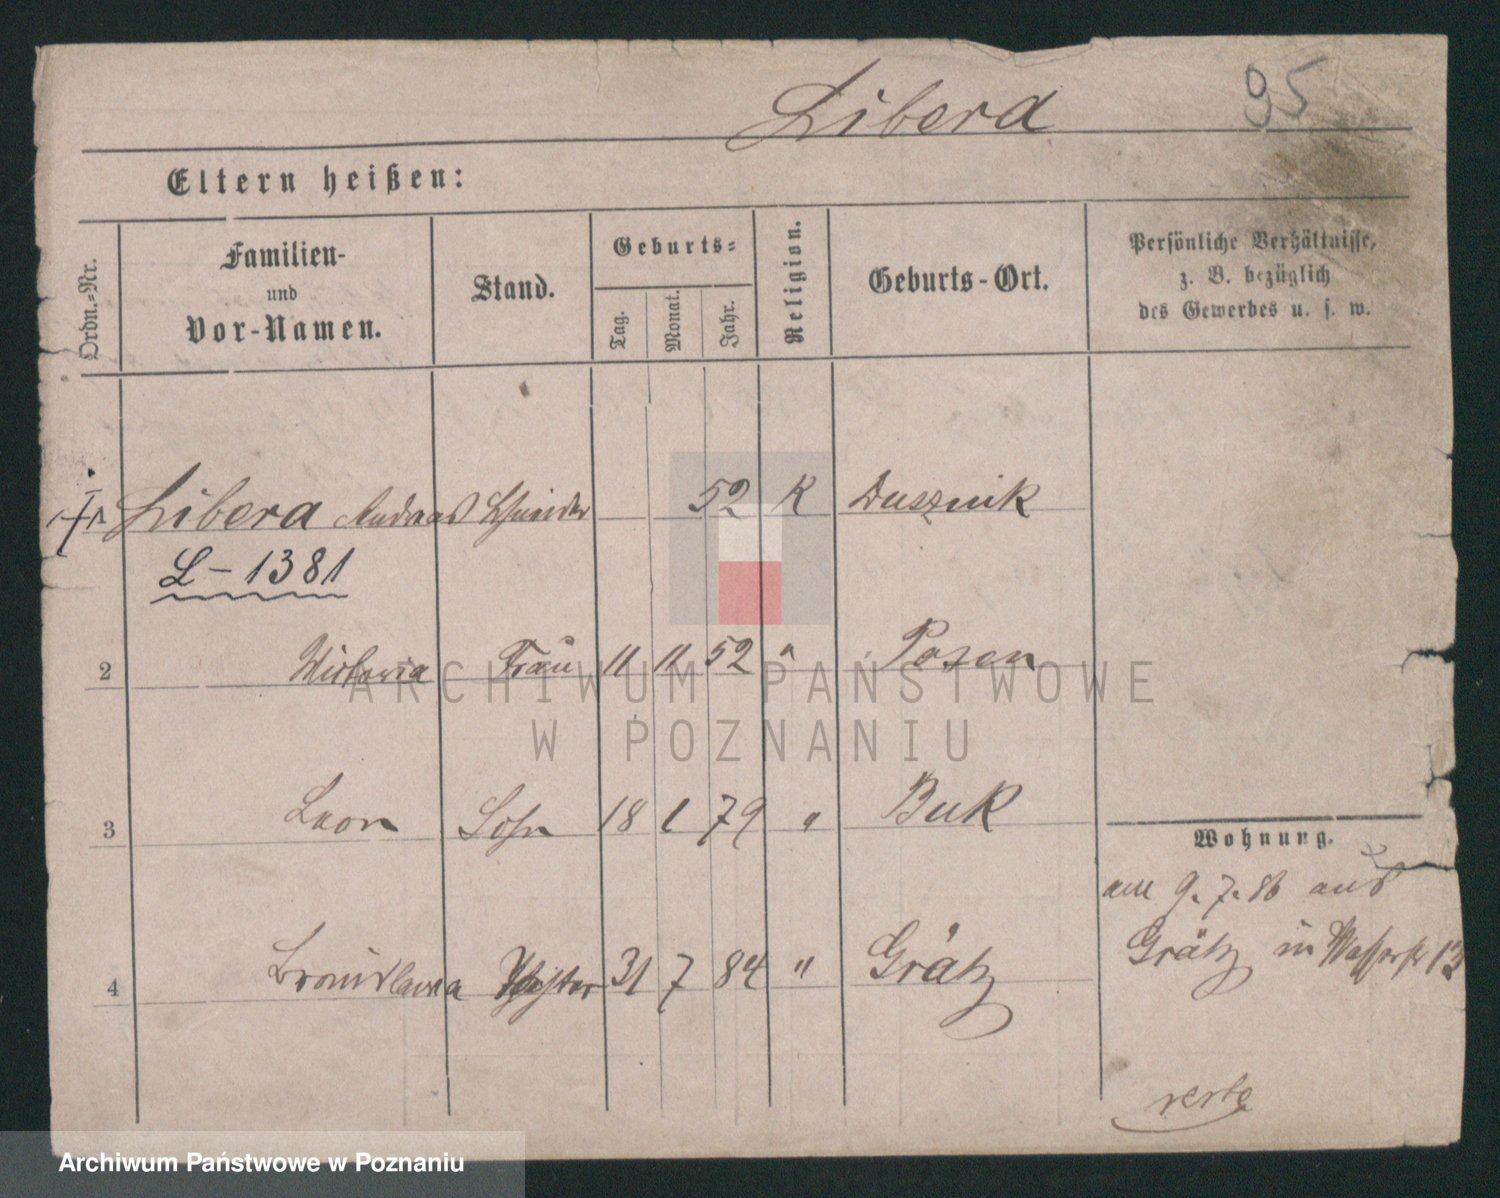 Libera 95
Eltern heißen:
Ordn.-Nr. Familien- und Vor-Namen. Stand. Geburts- Tag. Monat. Jahr. Religion. Geburts-Ort. Persönliche Verhältnisse, z. B. bezüglich des Gewerbes u. s. w.
Libera Andreas Schneider 52 K Dusznik
L-1381
2 Victoria Frau 11 11 52 " Posen
3 Leon Sohn 18 1 79 " Buk
Wohnung.
am 9. 7. 86 aus
4 Bronislawa Tochter 31 7 84 " Grätz
Grätz in Wasserstr 13
verte
ARCHIWUM PAŃSTWOWE
W POZNANIU
Archiwum Państwowe w Poznaniu